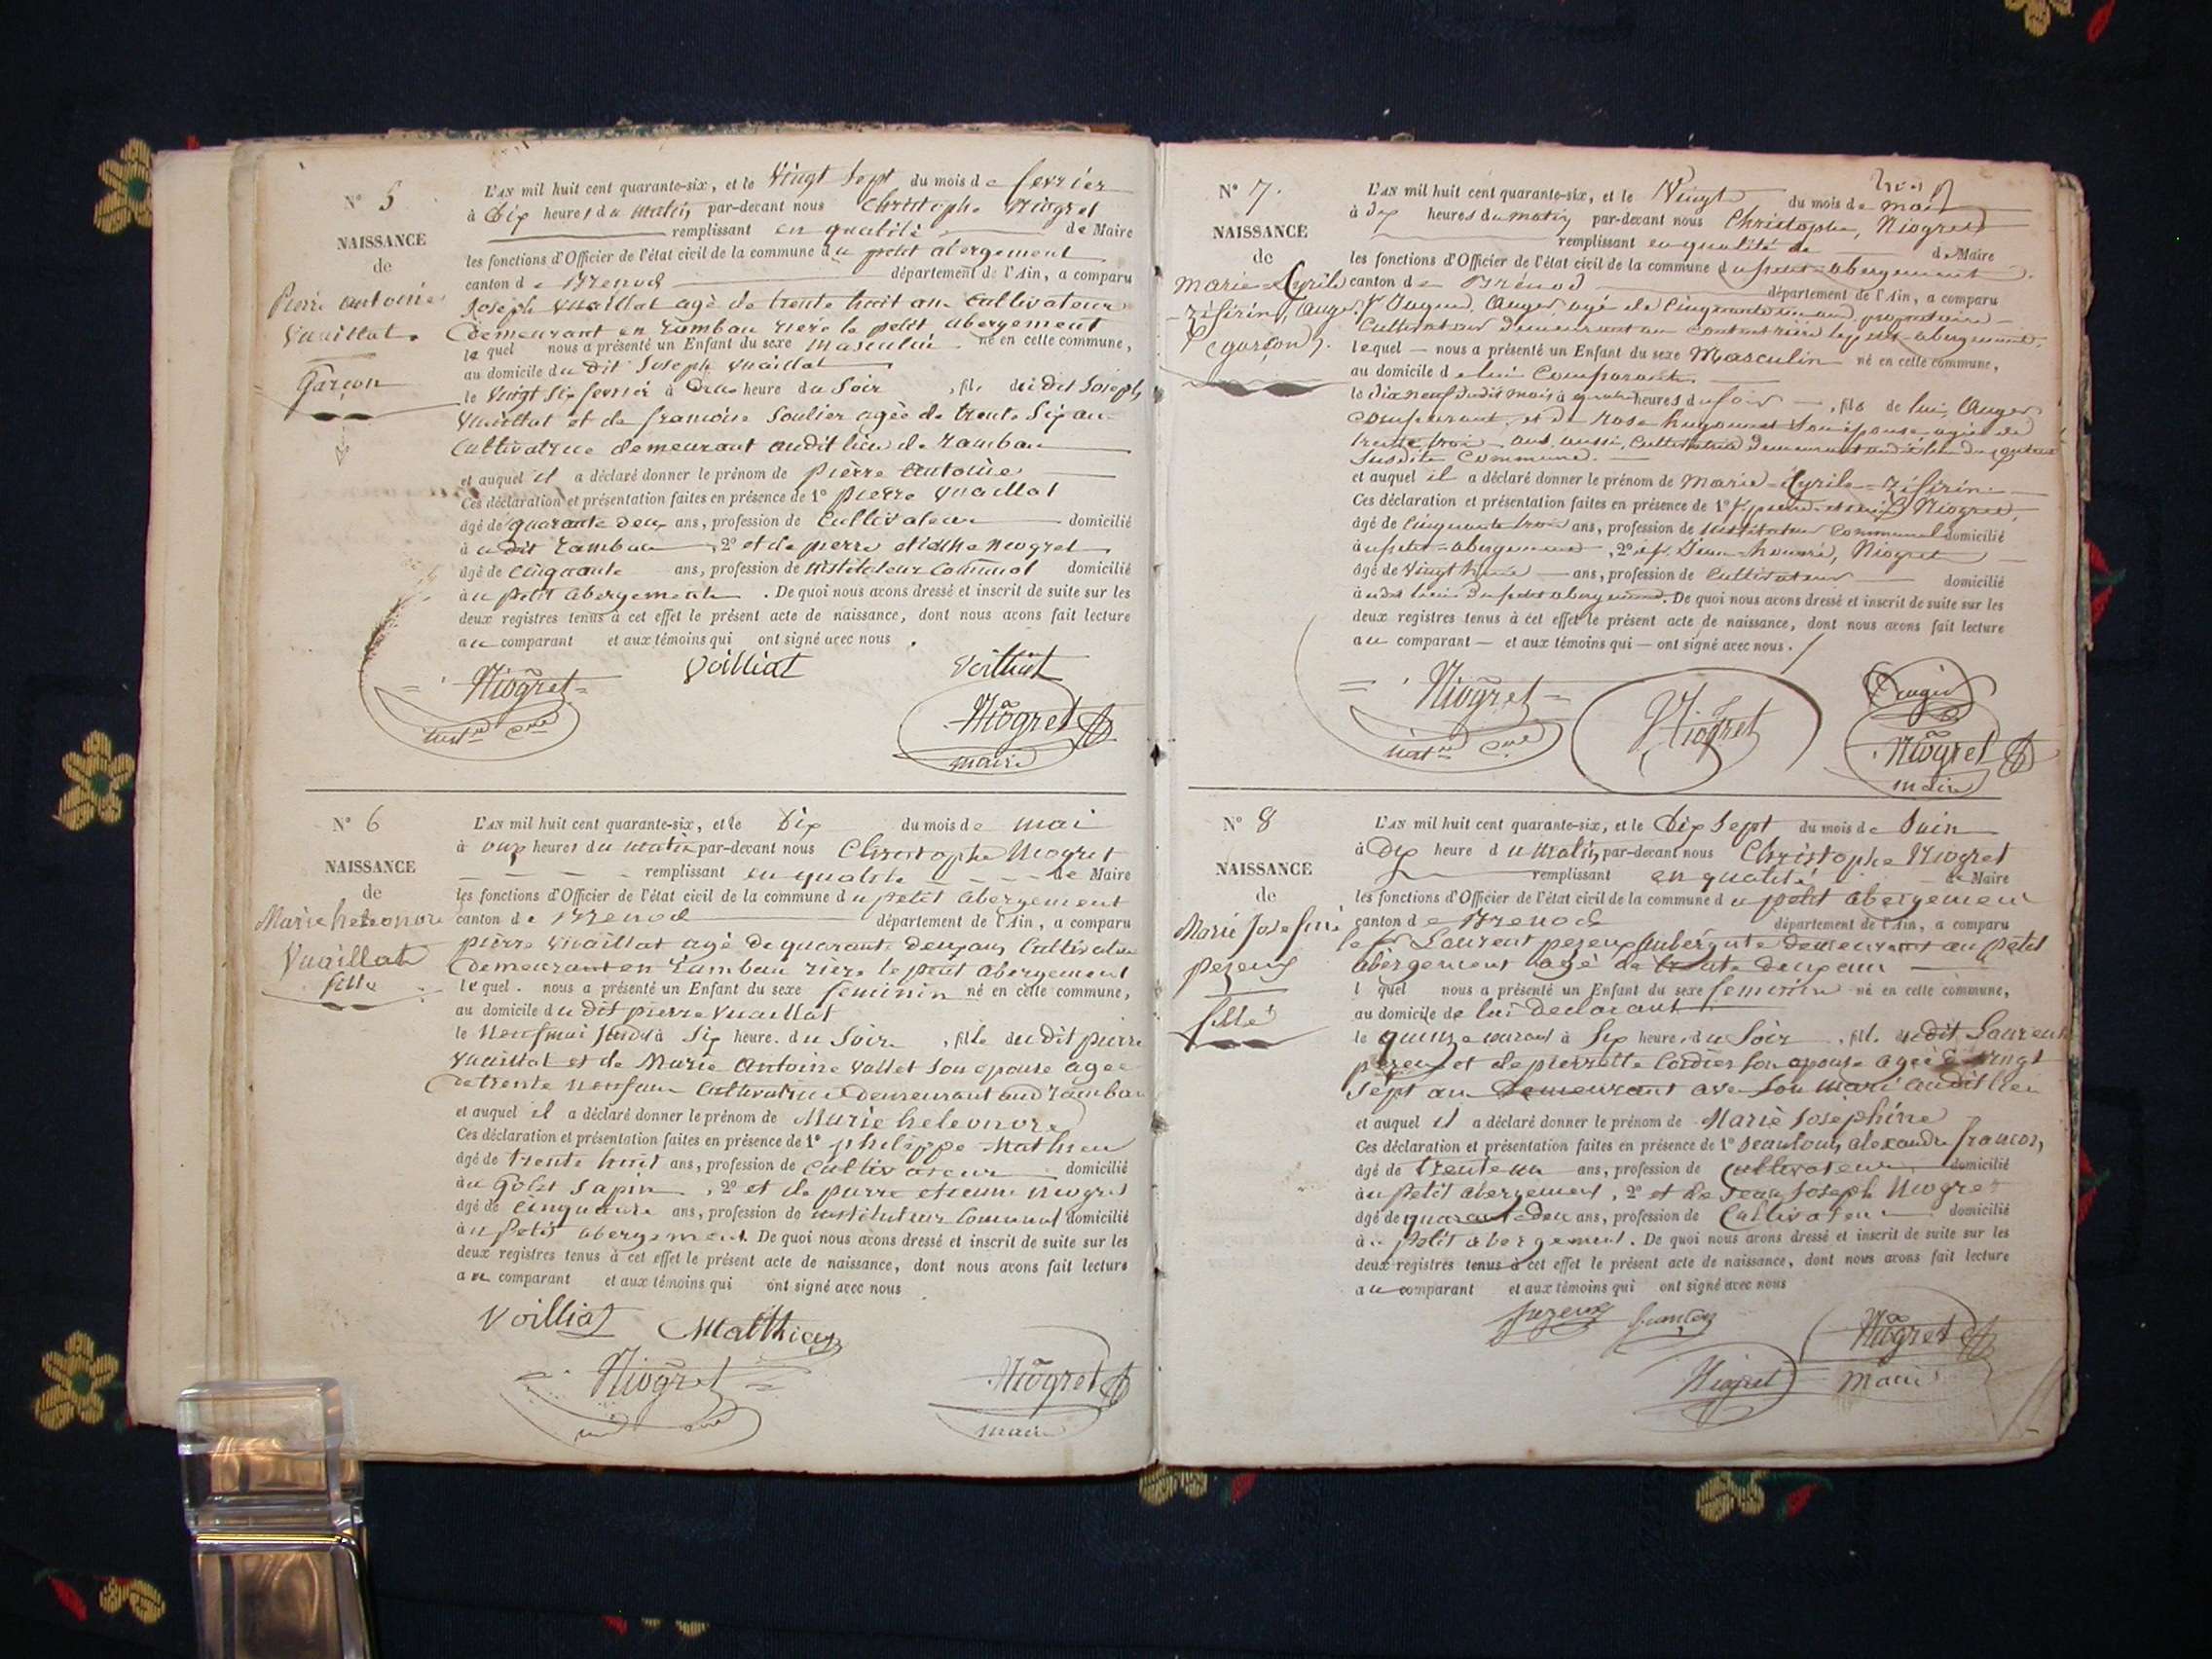 N° 5
NAISSANCE
de
Pierre antoine
Vuaillat
Garçon
L'AN mil huit cent quarante-six, et le Vingt Sept du mois de fevrier
à Dix heures du matin par-devant nous Christophe Niogret
remplissant en qualité de Maire
les fonctions d'Officier de l'état civil de la commune du petit abergement
canton de Brenod département de l'Ain, a comparu
Joseph Vuaillat agé de trente huit ans Cultivateur
demeurant en rambau riere le petit abergement
le quel nous a présenté un Enfant du sexe masculin né en cette commune,
au domicile du dit Joseph Vuaillat
le Vingt Six fevrier à Deux heure du Soir, fils du dit Joseph
Vuaillat et de francoise Soulier agée de trente Six an
Cultivatrice demeurant audit lieu de rambau
et auquel il a déclaré donner le prénom de pierre antoine
Ces déclaration et présentation faites en présence de 1° pierre Vuaillat
âgé de quarante deux ans, profession de Cultivateur domicilié
à u dit rambau, 2° et de pierre etienne neogret
âgé de Cinquante ans, profession de instituteur Communal domicilié
à u petit abergement. De quoi nous avons dressé et inscrit de suite sur les
deux registres tenus à cet effet le présent acte de naissance, dont nous avons fait lecture
au comparant et aux témoins qui ont signé avec nous.
Niogret Voilliat Voilliat
Niogret
maire
N° 6
NAISSANCE
de
Marie heleonore
Vuaillat
fille
L'AN mil huit cent quarante-six, et le Dix du mois de mai
à onze heures du matin par-devant nous Christophe Niogret
remplissant en qualité de Maire
les fonctions d'Officier de l'état civil de la commune du petit abergement
canton de Brenod département de l'Ain, a comparu
pierre Vuaillat agé de quarante deux ans Cultivateur
demeurant en rambau riere le petit abergement
le quel. nous a présenté un Enfant du sexe feminin né en cette commune,
au domicile du dit pierre Vuaillat
le Neuf mai à Six heure. du Soir, fille du dit pierre
Vuaillat et de Marie Antoine Vallet Son epouse agee
de trente neuf ans Cultivatrice demeurant aud rambau
et auquel il a déclaré donner le prénom de Marie heleonore
Ces déclaration et présentation faites en présence de 1° philippe Mathieu
âgé de trente huit ans, profession de Cultivateur domicilié
à u Golet Sapin, 2° et de pierre etienne niogret
âgé de Cinquante ans, profession de instituteur Communal domicilié
à u petit abergement. De quoi nous avons dressé et inscrit de suite sur les
deux registres tenus à cet effet le présent acte de naissance, dont nous avons fait lecture
au comparant et aux témoins qui ont signé avec nous
Voilliat Matthieu
Niogret Niogret
maire
N° 7.
NAISSANCE
de
marie=Cyrile
=zéfirin, Auger
(garçon).
L'AN mil huit cent quarante-six, et le Vingt du mois de mai
à dix heures du matin par-devant nous Christophe, Niogret
remplissant en qualité de de Maire
les fonctions d'Officier de l'état civil de la commune du petit=abergement
canton de Brénod département de l'Ain, a comparu
Auger, agé de Cinquante un ans, propriétaire
Cultivateur demeurant au riere le petit-abergement,
lequel — nous a présenté un Enfant du sexe Masculin né en cette commune,
au domicile de lui Comparant.
le dix neuf dudit mois à quatre heures du soir, fils de lui, Auger
comparant, et de rose hugonnet Son épouse agée de
trente trois ans, aussi, Cultivatrice demeurant audit lieu
Susdite Commune.
et auquel il a déclaré donner le prénom de marie=Cyrile=zéfirin
Ces déclaration et présentation faites en présence de 1° pierre-etienne Niogret,
âgé de Cinquante trois ans, profession de instituteur Communal domicilié
à u petit=abergement, 2° Niogret
âgé de Vingt ans, profession de Cultivateur domicilié
à udit lieu du petit abergement. De quoi nous avons dressé et inscrit de suite sur les
deux registres tenus à cet effet le présent acte de naissance, dont nous avons fait lecture
au comparant — et aux témoins qui — ont signé avec nous.
Niogret Niogret Auger
Niogret
maire
N° 8
NAISSANCE
de
Marie Josefine
pezeux
fille
L'AN mil huit cent quarante-six, et le Dix Sept du mois de Juin
à Dix heure du Matin, par-devant nous Christophe Niogret
remplissant en qualité de Maire
les fonctions d'Officier de l'état civil de la commune du petit abergement
canton de Brenod département de l'Ain, a comparu
Laurent pezeux Aubergiste demeurant au petit
abergement agé de trente deux ans
l quel nous a présenté un Enfant du sexe feminin né en cette commune,
au domicile de lui declarant
le quinze courant à Six heure du Soir, fille dudit Laurent
pezeux et de pierrette Cordier son epouse agée de vingt
sept an demeurant avec son mari audit lieu
et auquel il a déclaré donner le prénom de Marie Josephine
Ces déclaration et présentation faites en présence de 1° Jean Louis alexandre francon,
âgé de trente un ans, profession de Cultivateur domicilié
à u petit abergement, 2° et de Jean Joseph Niogret
âgé de quarante deux ans, profession de Cultivateur domicilié
à u petit abergement. De quoi nous avons dressé et inscrit de suite sur les
deux registres tenus à cet effet le présent acte de naissance, dont nous avons fait lecture
au comparant et aux témoins qui ont signé avec nous
pezeux francon Niogret
Niogret maire